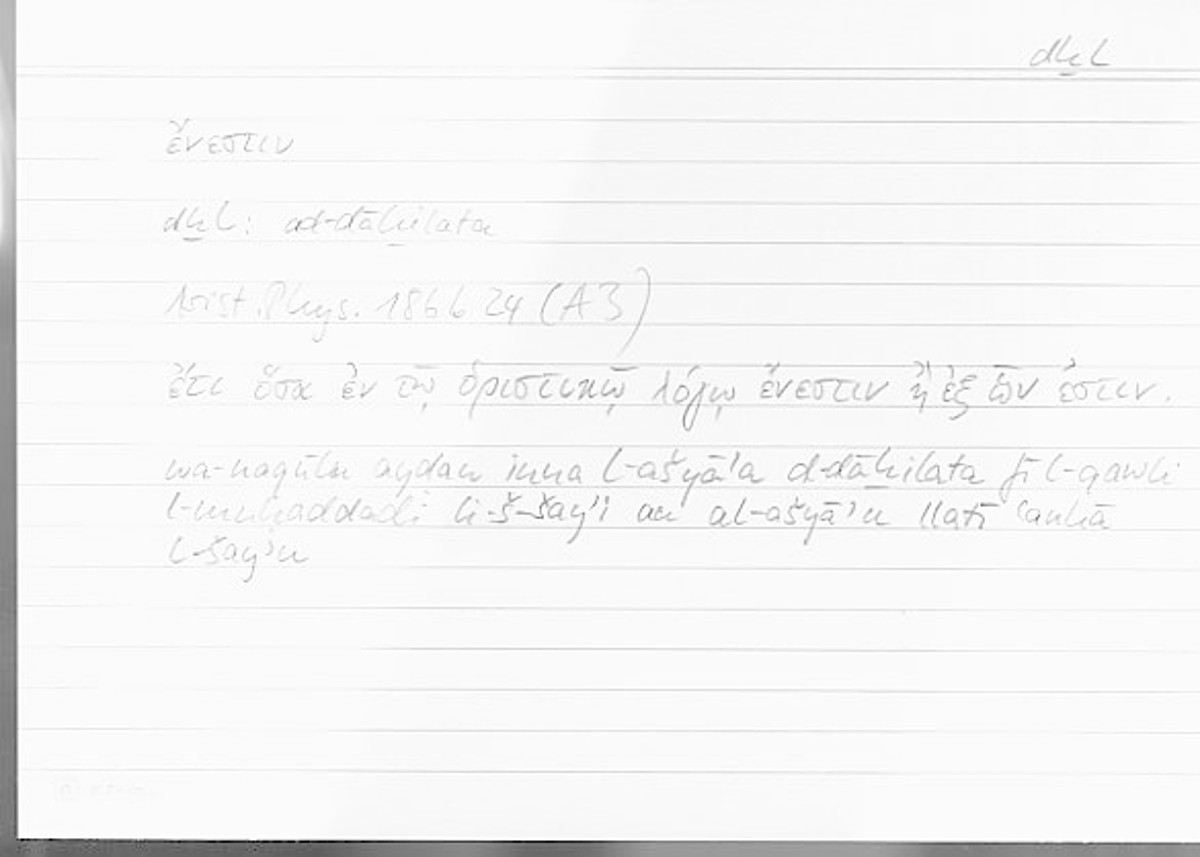 dḫl
ἔνεστιν
dḫl: ad-dāḫilata
Arist. Phys. 186 b 24 (A 3)
ἔτι ὅσα ἐν τῷ ὁριστικῷ λόγῳ ἔνεστιν ἢ ἐξ ὧν ἐστιν.
wa-naqūlu ayḍan inna l-ašyā'a d-dāḫilata fī l-qawli
l-muḥaddadi li-š-šay'i au al-ašyā'u llatī ʿanhā
l-šay'u